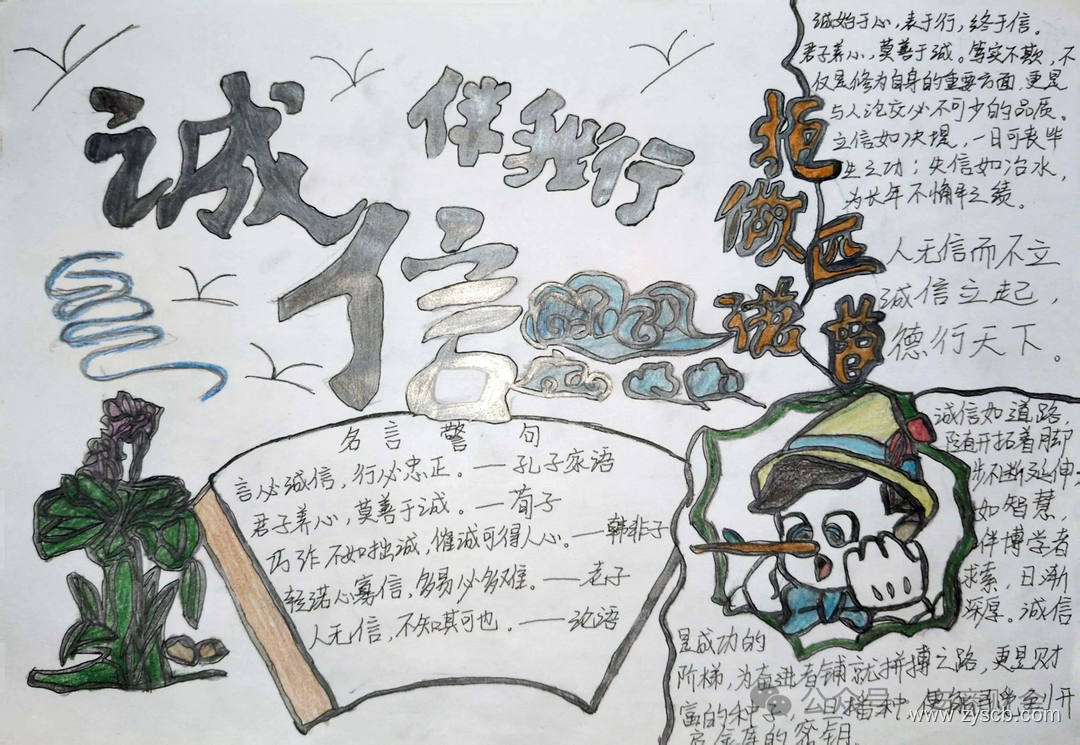 诚信
伴我行
诚始于心，表于行，终于信。
君子养心，莫善于诚。笃实不欺，不
仅是修为自身的重要方面，更是
与人论交必不可少的品质。
立信如决堤，一日可丧毕
生之功；失信如治水，
为长年不惰之绩。
拒做匹
诺曹
人无信而不立
诚信立起，
德行天下。
名言警句
言必诚信，行必忠正。——孔子家语
君子养心，莫善于诚。——荀子
巧诈不如拙诚，惟诚可得人心。——韩非子
轻诺必寡信，多易必多难。——老子
人无信，不知其可也。——论语
诚信如道路，
随开拓着脚
步不断延伸，
如智慧，
伴博学者
求索，日渐
深厚。诚信
是成功的
阶梯，为奋进者铺就拼搏之路，更是财
富的种子，
公众号
www.zyscb.com